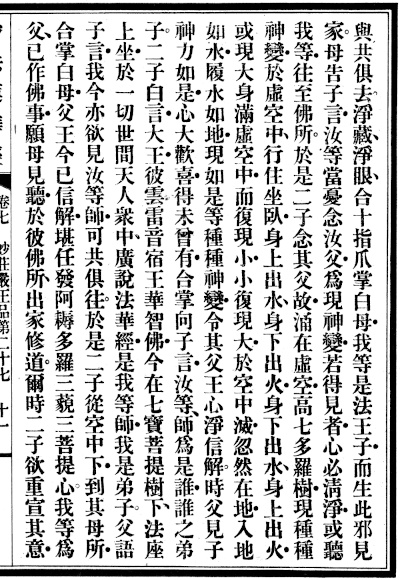 與共俱去淨藏淨眼合十指爪掌白母我等是法王子而生此邪見
家母告子言汝等當憂念汝父爲現神變若得見者心必清淨或聽
我等往至佛所於是二子念其父故涌在虛空高七多羅樹現種種
神變於虛空中行住坐臥身上出水身下出火身下出水身上出火
或現大身滿虛空中而復現小小復現大於空中滅忽然在地入地
如水履水如地現如是等種種神變令其父王心淨信解時父見子
神力如是心大歡喜得未曾有合掌向子言汝等師爲是誰誰之弟
子二子白言大王彼雲雷音宿王華智佛今在七寶菩提樹下法座
上坐於一切世間天人衆中廣說法華經是我等師我是弟子父語
子言我今亦欲見汝等師可共俱往於是二子從空中下到其母所
合掌白母父王今已信解堪任發阿耨多羅三藐三菩提心我等爲
父已作佛事願母見聽於彼佛所出家修道爾時二子欲重宣其意
卷七 妙莊嚴王品第二十七 十一